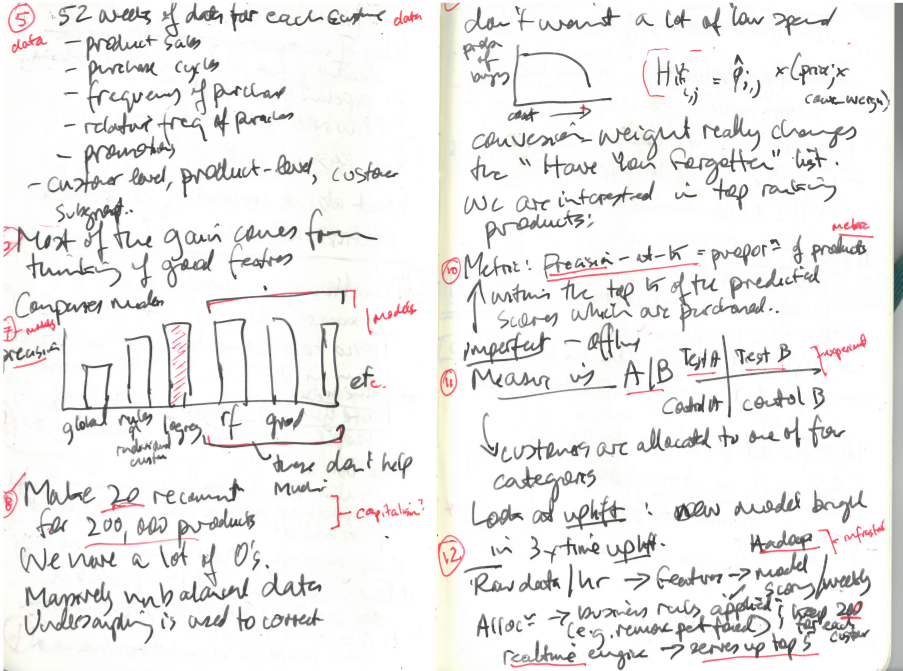 5 52 weeks of data for each customer data
data - product sales
- purchase cycles
- frequency of purchase
- relative freq of purchases
- promotions
- customer level, product-level, customer
subgroup..
Most of the gain comes from
thinking of good features
Compares models
7 - models
precision
models
etc.
global rules logreg rf gmod
of
individual
custom
these don't help
much
8 Make 20 recomm
for 200,000 products
- capitalism?
We have a lot of 0's.
Massively unbalanced data
Undersampling is used to correct
don't want a lot of low spend
propn
of
buys
cost
H i,j = p̂ i,j x (price j x
conv-weight)
conversion-weight really changes
the "Have You Forgotten" list.
We are interested in top ranking
products:
metric
10 Metric: Precision-at-k = proporn of products
within the top k of the predicted
scores which are purchased..
imperfect - offline
11 Measure is A|B Test A Test B
Control A Control B
customers are allocated to one of four
categories
Look at uplift : new model brought
in 3x time uplift.
12 Hadoop
Raw data / hr → feature → model
scoring/weekly
Alloc → business rules applied ; keep 200
(e.g. remove pet food) for each
custom
realtime engine → serves up top 5